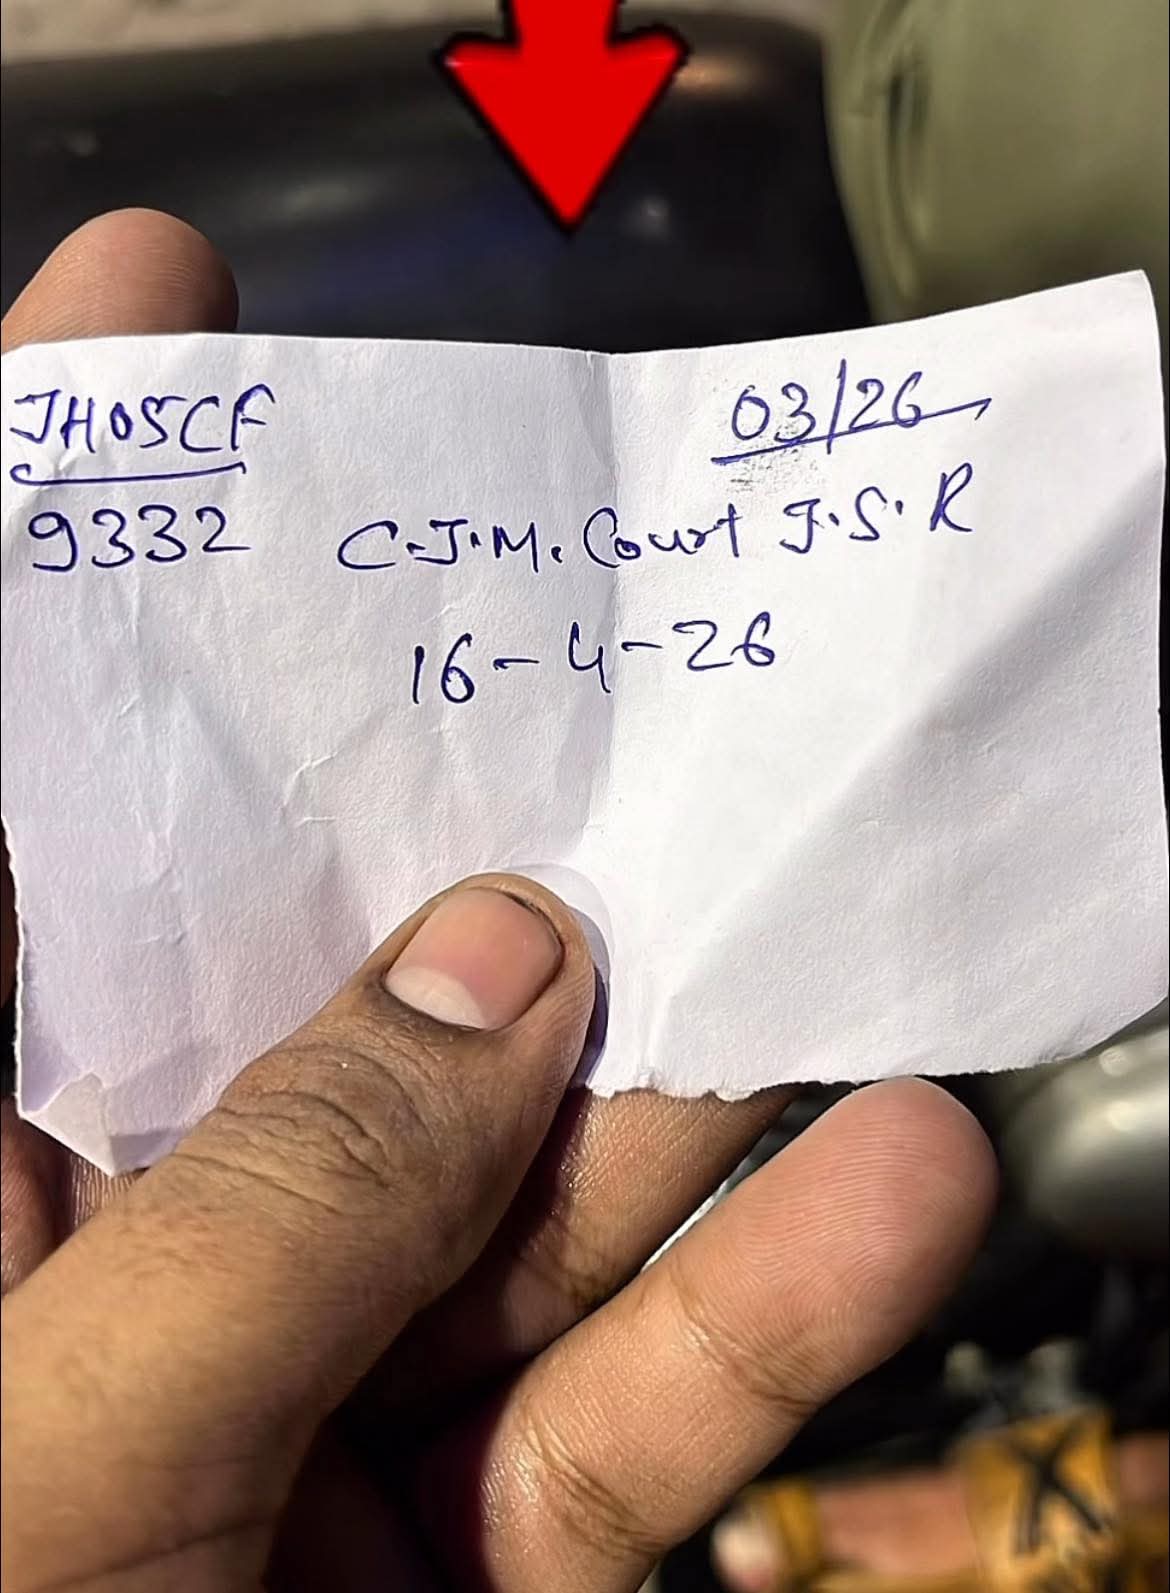 JH05CF
03/26
9332
C.J.M. Court J.S.R
16-4-26